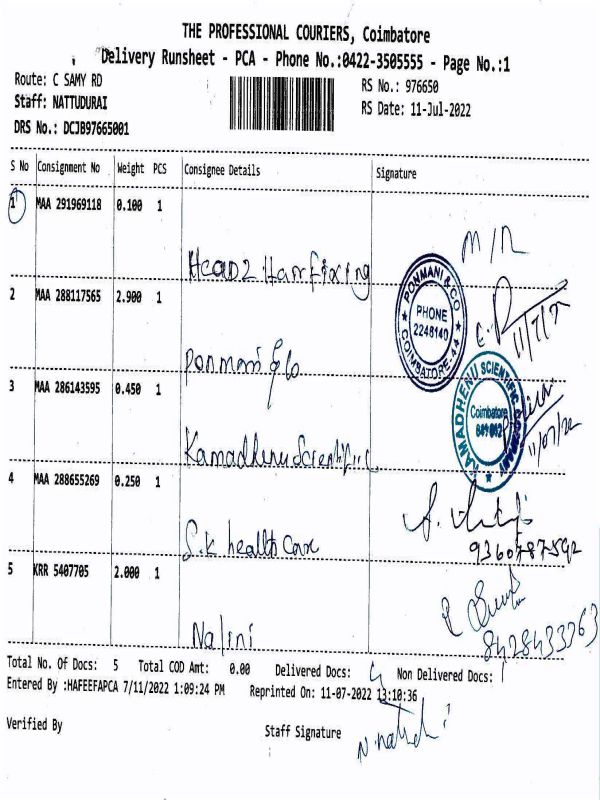 THE PROFESSIONAL COURIERS, Coimbatore
Delivery Runsheet - PCA - Phone No.:0422-3505555 - Page No.:1
Route: C SAMY RD
RS No.: 976650
Staff: NATTUDURAI
RS Date: 11-Jul-2022
DRS No.: DCJB97665001
S No Consignment No Weight PCS Consignee Details Signature
1 MAA 291969118 0.100 1
Head2 Hair fixing
M/R
2 MAA 288117565 2.900 1
Ponmani & Co
PONMANI & CO
PHONE
2248140
COIMBATORE-44
11/7/2
3 MAA 286143595 0.450 1
Kamadhenu Scientific
KAMADHENU SCIENTIFIC COMPANY
Coimbatore
11/07/22
4 MAA 288655269 0.250 1
S.K health Care
9360787592
5 KRR 5407705 2.000 1
Nalini
8428433363
Total No. Of Docs: 5 Total COD Amt: 0.00 Delivered Docs: 4 Non Delivered Docs: 1
Entered By :HAFEEFAPCA 7/11/2022 1:09:24 PM Reprinted On: 11-07-2022 13:10:36
Verified By
Staff Signature